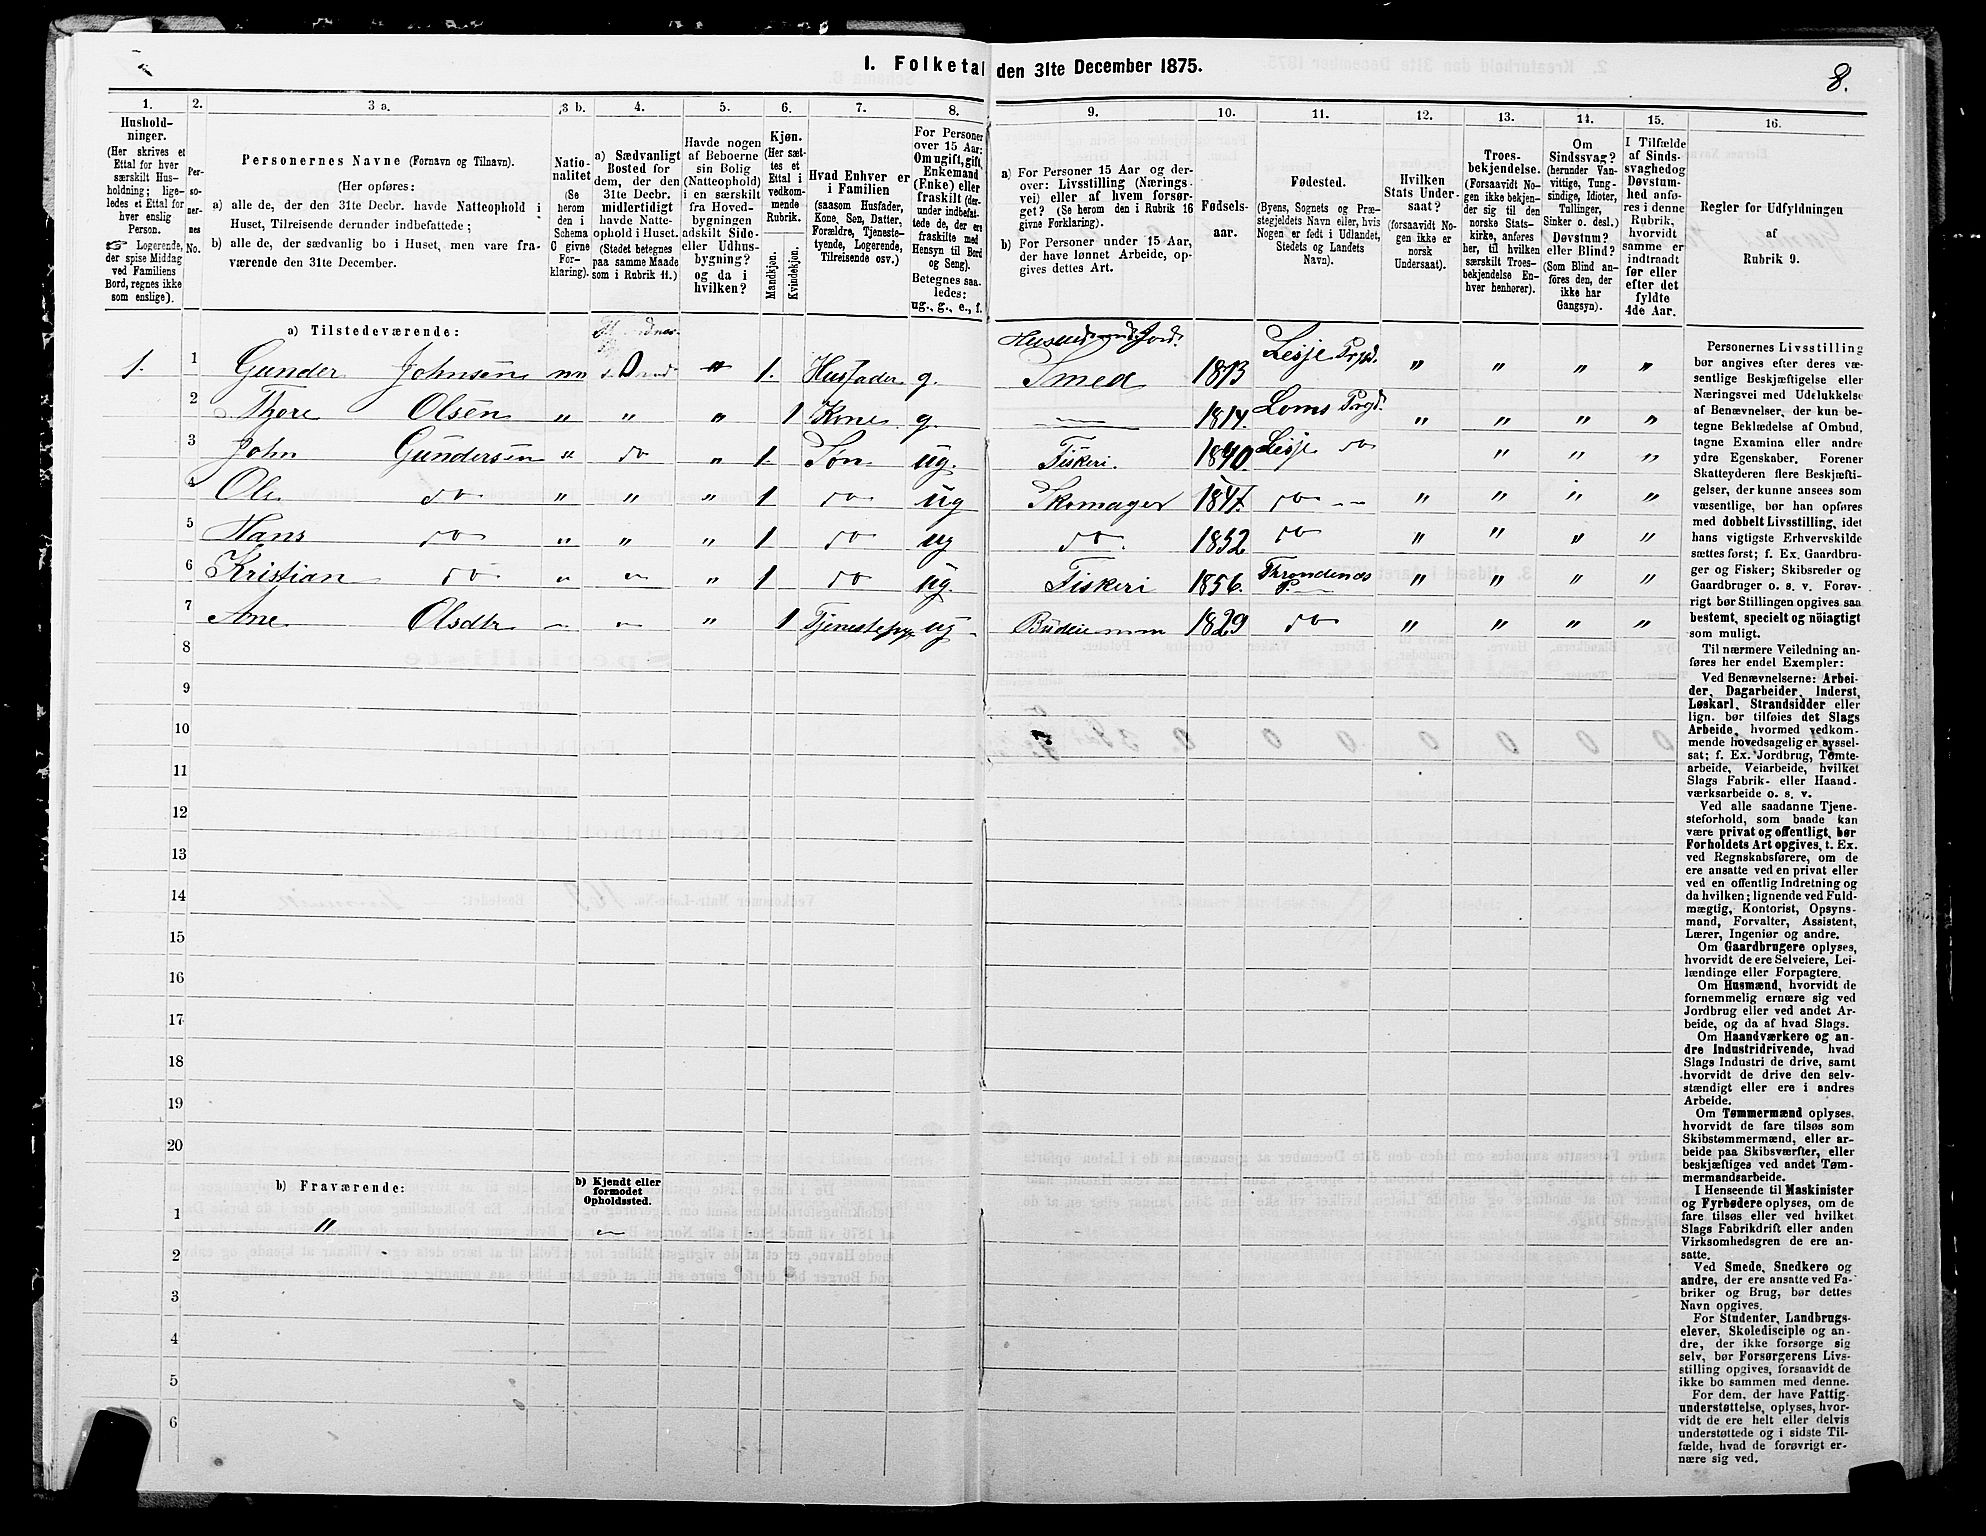 1. Folketal den 31te December 1875.
8.
1.
2.
3 a.
3 b.
4.
5.
6.
7.
8.
9.
10.
11.
12.
13.
14.
15.
16.
Hushold-
ninger.
(Her skrives et
Ettal for hver
særskilt Hus-
holdning; lige-
ledes et Ettal for
hver enslig
Person.
☞ Logerende,
der spise Middag
ved Familiens
Bord, regnes ikke
som enslige).
Per-
so-
ner-
nes
No.
Personernes Navne (Fornavn og Tilnavn).
(Her opføres:
a) alle de, der den 31te Decbr. havde Natteophold i
Huset, Tilreisende derunder indbefattede;
b) alle de, der sædvanlig bo i Huset, men vare fra-
værende den 31te December.
Natio-
nalitet
(Se
herom
den i
Schema
C givne
For-
klaring).
a) Sædvanligt
Bosted for
dem, der den
31te Decbr.
midlertidigt
havde Natte-
ophold i Huset.
(Stedet betegnes
paa samme Maade
som i Rubrik 11.)
Havde nogen
af Beboerne
sin Bolig
(Natteophold)
i en særskilt
fra Hoved-
bygningen
adskilt Side-
eller Udhus-
bygning?
og da i
hvilken?
Kjøn.
(Her sæt-
tes et
Ettal i
vedkom-
mende
Rubrik.
Mandkjøn.
Kvindekjøn.
Hvad Enhver er
i Familien
(saasom Husfader,
Kone, Søn, Datter,
Forældre, Tjeneste-
tyende, Logerende,
Tilreisende osv.)
For Personer
over 15 Aar:
Om ugift, gift,
Enkemand
(Enke) eller
fraskilt (der-
under indbefat-
tede de, der ere
fraskilte med
Hensyn til Bord
og Seng).
Betegnes saa-
ledes:
ug., g., e., f.
a) For Personer 15 Aar og der-
over: Livsstilling (Nærings-
vei) eller af hvem forsør-
get? (Se herom den i Rubrik 16
givne Forklaring).
b) For Personer under 15 Aar,
der have lønnet Arbeide, op-
gives dettes Art.
Fødsels-
aar.
Fødested.
(Byens, Sognets og Præ-
stegjeldets Navn eller, hvis
Nogen er født i Udlandet,
Stedets og Landets
Navn).
Hvilken
Stats Under-
saat?
(forsaavidt No-
gen ikke er
norsk
Undersaat).
Troes-
bekjendelse.
(Forsaavidt No-
gen ikke bekjen-
der sig til den
norske Stats-
kirke, anføres
her, til hvilken
særskilt Troes-
bekjendelse En-
hver henhører).
Om
Sindssvag?
(herunder Van-
vittige, Tung-
sindige, Idioter,
Tullinger,
Sinker o. desl.)
Døvstum?
eller Blind?
(Som Blind an-
föres den, der
ikke har
Gangsyn).
I Tilfælde
af Sinds-
svaghed og
Døvstum-
hed anfø-
res i denne
Rubrik,
hvorvidt
samme er
indtraadt
før eller
efter det
fyldte
4de Aar.
Regler for Udfyldningen
af
Rubrik 9.
a) Tilstedeværende:
Husmd. Jord.
1. 1 Gunder Johnsen nn " 1. Husfader g. Smed 1813 Lesje Prgd. " " " "
2 Thore Olsen " " " 1 Kone g. — 1814. Loms Prgd. " " " "
3 John Gundersen " do " 1 Søn ug. Fiskeri. 1840 Lesje do " " "
4 Ole do " " " 1 do ug Skomager 1847. do — " " " "
5 Hans do " " " 1 do ug do. 1852 do " " " "
6 Kristian do " " " 1 do ug. Fiskeri 1856. Throndenæs P. " " " "
7 Ane Olsdtr " " " 1 ug 1829 do " " " "
8
9
10
11
12
13
14
15
16
17
18
19
20
b) Fraværende:
b) Kjendt eller
formodet
Opholdssted.
1 " "
2
3
4
5
6
Personernes Livsstilling
bør angives efter deres væ-
sentlige Beskjæftigelse eller
Næringsvei med Udelukkelse
af Benævnelser, der kun be-
tegne Beklædelse af Ombud,
tagne Examina eller andre
ydre Egenskaber. Forener
Skatteyderen flere Beskjæfti-
gelser, der kunne ansees som
væsentlige, bør han opføres
med dobbelt Livsstilling, idet
hans vigtigste Erhvervskilde
sættes først; f. Ex. Gaardbru-
ger og Fisker; Skibsreder og
Gaardbruger o. s. v. Forøv-
rigt bør Stillingen opgives saa
bestemt, specielt og nöiagtigt
som muligt.
Til nærmere Veiledning an-
føres her endel Exempler:
Ved Benævnelserne: Arbei-
der, Dagarbeider, Inderst,
Løskarl, Strandsidder eller
lign. bør tilføies det Slags
Arbeide, hvormed vedkom-
mende hovedsagelig er syssel-
sat; f. Ex. Jordbrug, Tømte-
arbeide, Veiarbeide, hvilket
Slags Fabrik- eller Haand-
værksarbeide o. s. v.
Ved alle saadanne Tjene-
steforhold, som baade kan
være privat og offentligt, bør
Forholdets Art opgives, t. Ex.
ved Regnskabsførere, om de
ere ansatte ved en privat eller
ved en offentlig Indretning og
da hvilken; lignende ved Fuld-
mægtig, Kontorist, Opsyns-
mand, Forvalter, Assistent,
Lærer, Ingeniør og andre.
Om Gaardbrugere oplyses,
hvorvidt de ere Selveiere, Lei-
lændinge eller Forpagtere.
Om Husmænd, hvorvidt de
fornemmelig ernære sig ved
Jordbrug eller ved andet Ar-
beide, og da af hvad Slags.
Om Haandværkere og an-
dre Industridrivende, hvad
Slags Industri de drive, samt
hvorvidt de drive den selv-
stændigt eller ere i andres
Arbeide.
Om Tømmermænd oplyses,
hvorvidt de fare tilsøs som
Skibstømmermænd, eller ar-
beide paa Skibsværfter, eller
beskjæftiges ved andet Tøm-
mermandsarbeide.
I Henseende til Maskinister
og Fyrbødere oplyses, om de
fare tilsøs eller ved hvilket
Slags Fabrikdrift eller anden
Virksomhedsgren de ere an-
satte.
Ved Smede, Snedkere og
andre, der ere ansatte ved Fa-
briker og Brug, bør dettes
Navn opgives.
For Studenter, Landbrugs-
elever, Skoledisciple og an-
dre, der ikke forsørge sig
selv, bør Forsørgerens Livs-
stilling opgives, forsaavidt de
ikke bo sammen med denne.
For dem, der have Fattig-
understøttelse, oplyses, hvor-
vidt de ere helt eller delvis
understøttede og i sidste Til-
fælde, hvad de forøvrigt er-
nære sig ved.